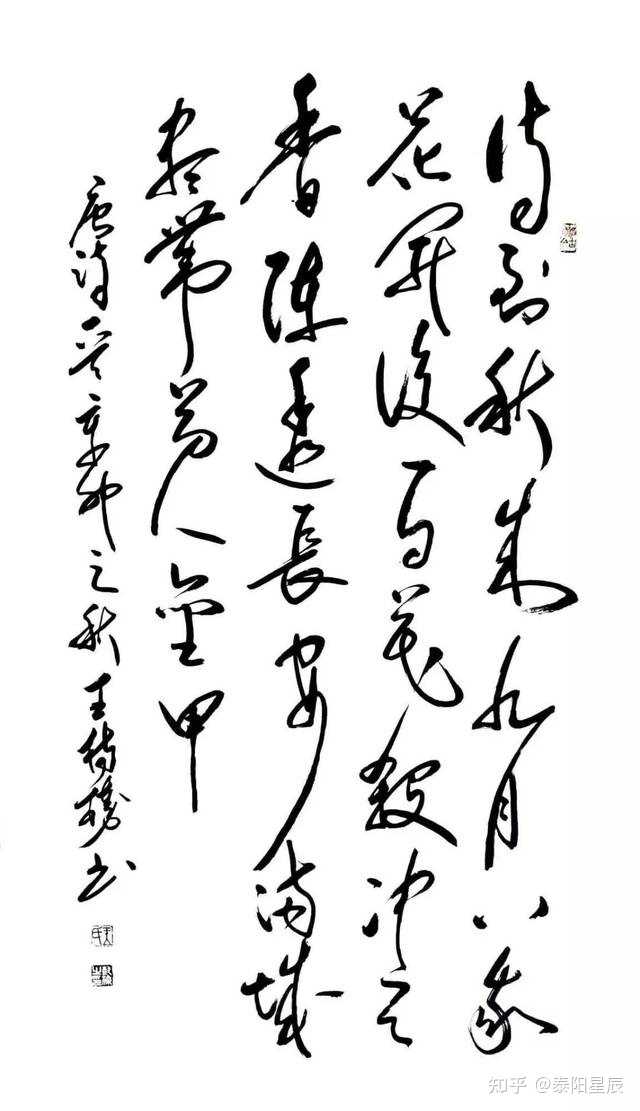 待到秋来九月八我
花開後百花殺冲天
香陣透長安满城
尽帶黄金甲
唐诗一首辛卯之秋王书
知乎 @泰阳星辰